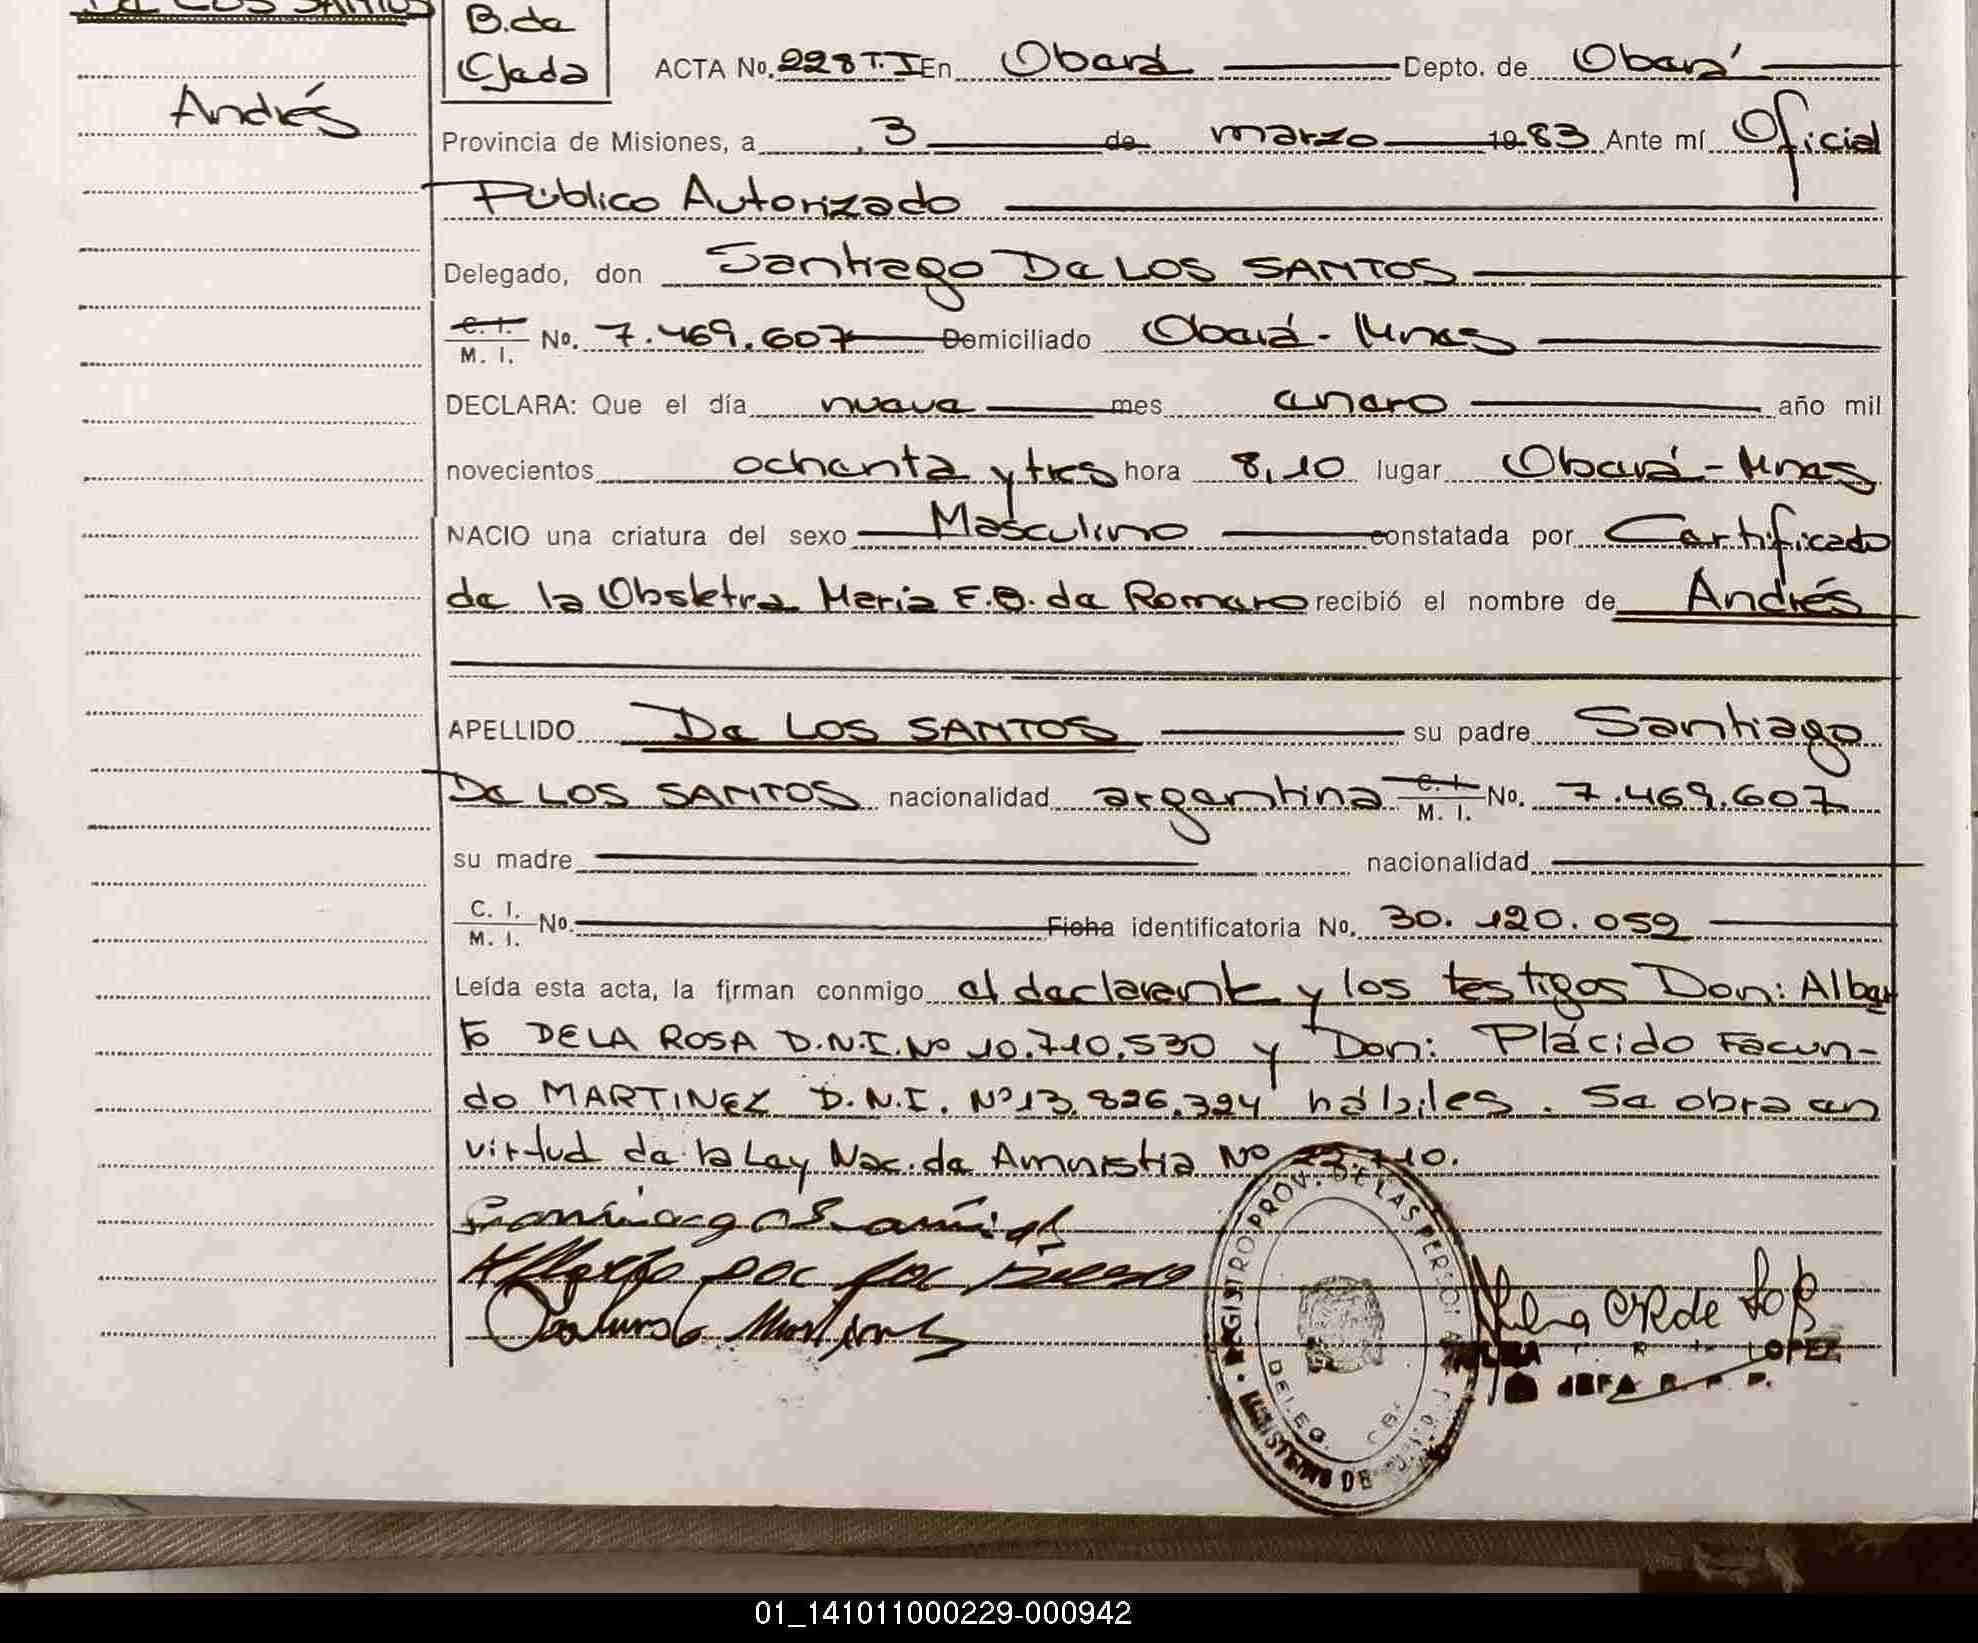 DE LOS SANTOS
Andrés
B.de
Cjada
ACTA No. 228 T.I En Oberá Depto. de Oberá
Provincia de Misiones, a 3 de marzo 1983 Ante mí Oficial
Público Autorizado
Delegado, don Santiago De LOS SANTOS
C. I.
M. I. No. 7.469.607 Domiciliado Oberá - Mnes
DECLARA: Que el día nueve mes enero año mil
novecientos ochenta y tres hora 8,10 lugar Oberá - Mnes
NACIO una criatura del sexo Masculino constatada por Certificado
de la Obstetra María E.B. de Romero recibió el nombre de Andrés
APELLIDO De LOS SANTOS su padre Santiago
De LOS SANTOS nacionalidad argentina C. I. M. I. No. 7.469.607
su madre nacionalidad
C. I.
M. I. No. Ficha identificatoria No. 30.120.059
Leída esta acta, la firman conmigo el declarante y los testigos Don: Alber
to DE LA ROSA D.N.I. Nº 10.710.530 y Don: Plácido Facun-
do MARTINEZ D.N.I. Nº 13.826.324 hábiles. Se obra en
virtud de la Ley Nac. de Amnistia Nº 22.710.
REGISTRO PROV. DE LAS PERSONAS
MINISTERIO DE
DELEG.
LOPEZ
JEFA R. P. P.
01_141011000229-000942